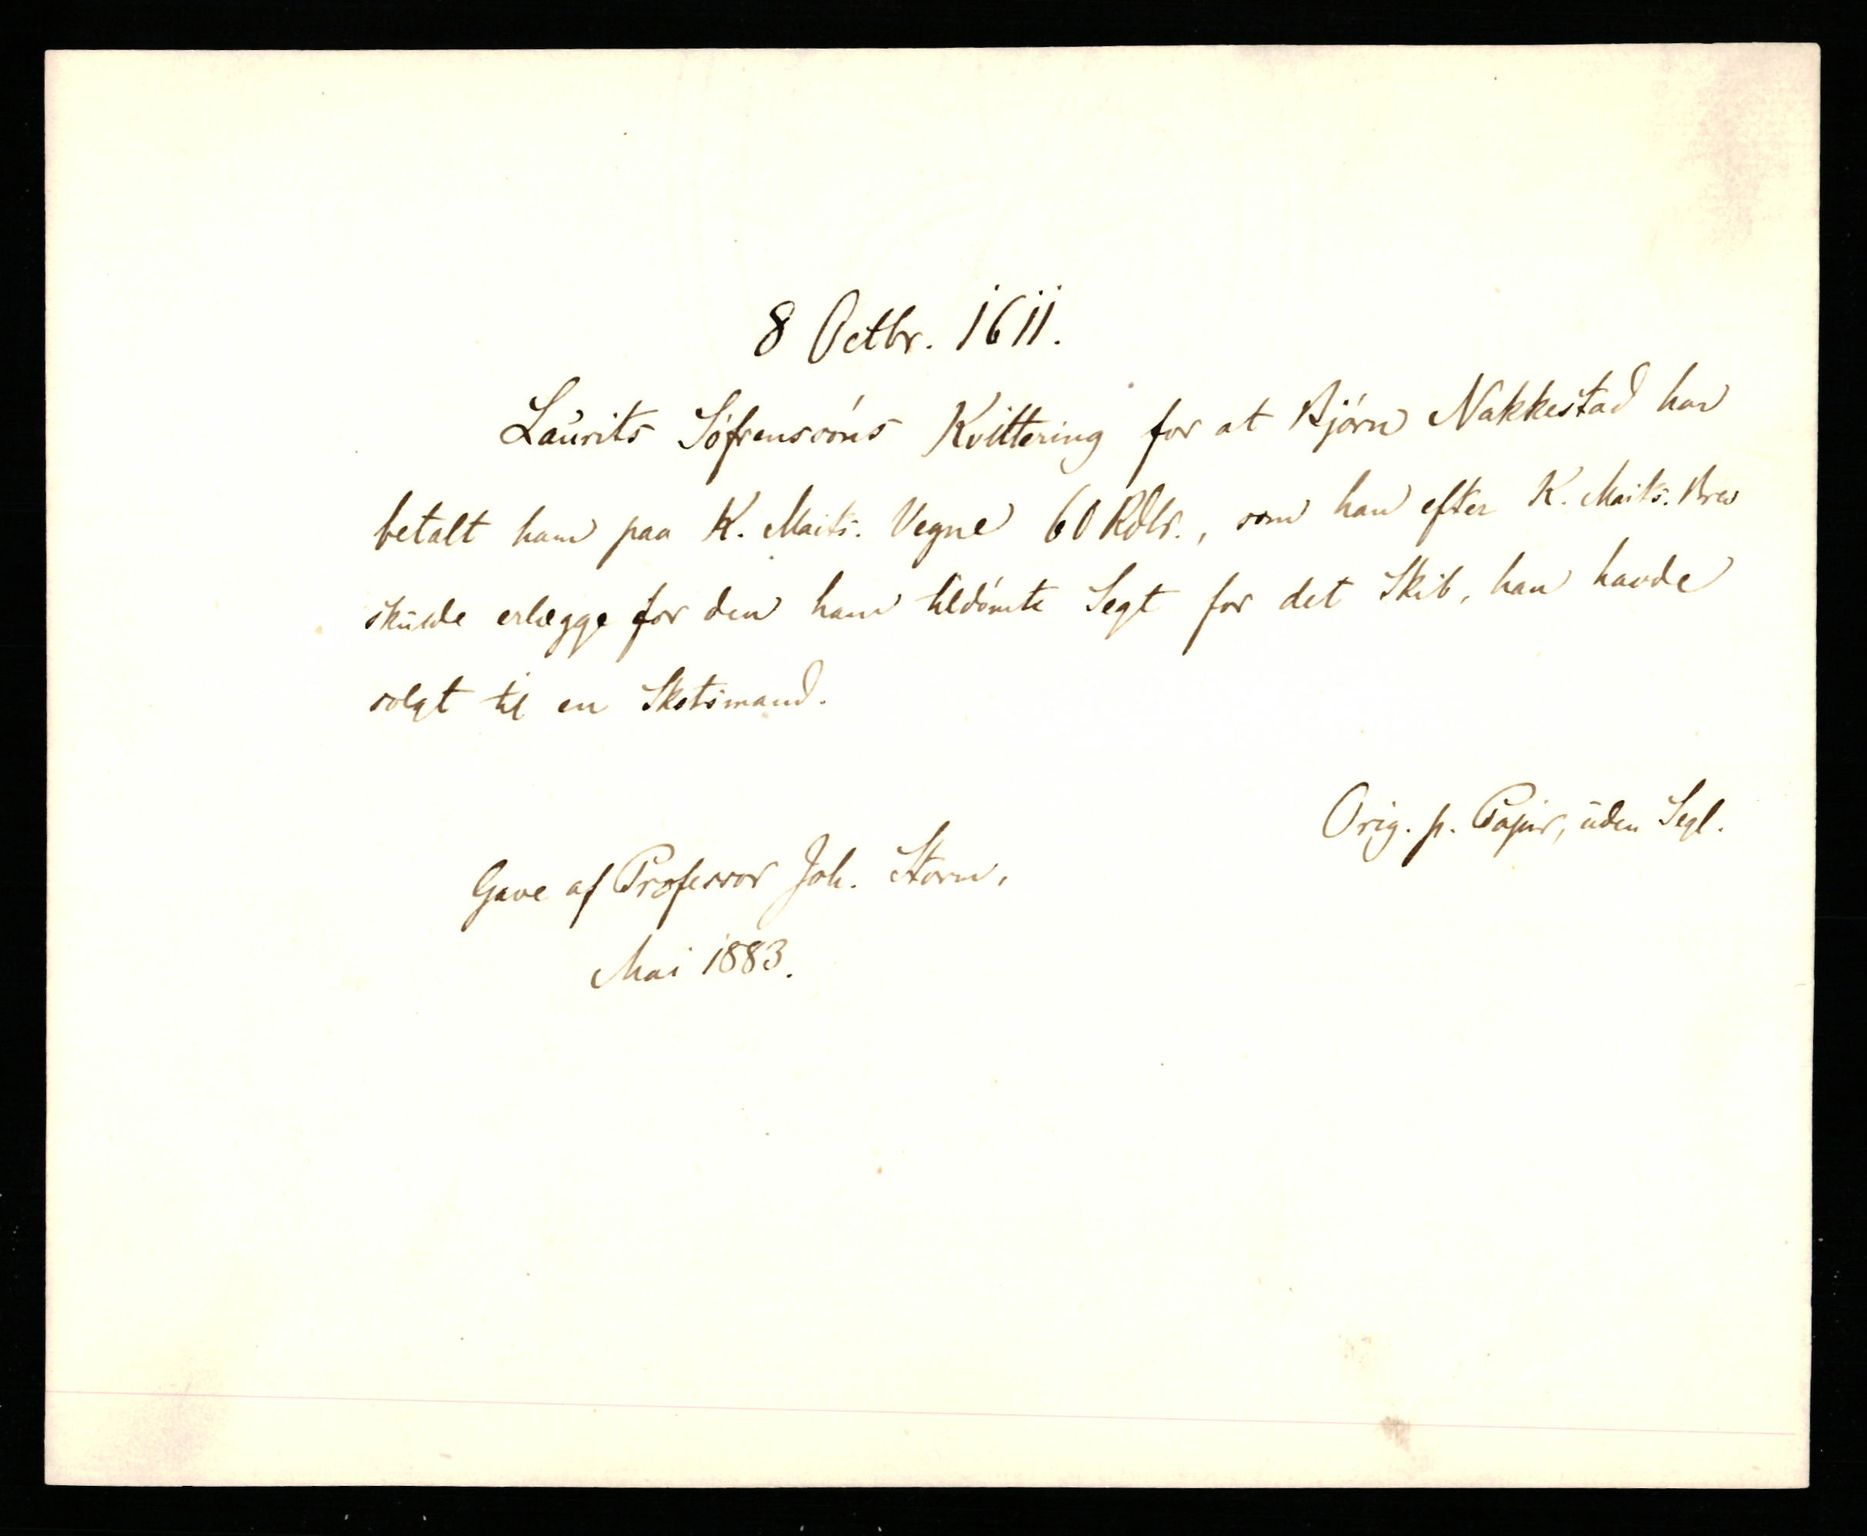 8 Octbr. 1611.
Laurits Söfrensøns Kvittering for at Bjørn Nakkestad har
betalt ham paa K. Maits. Vegne 60 Rdlr., som han efter K. Maits. Brev
skulde erlægge for den ham tildömte Segt for det Skib, han havde
solgt til en Skotsmand.
Orig. p. Papir, uden Segl.
Gave af Professor Joh. Storm,
Mai 1883.